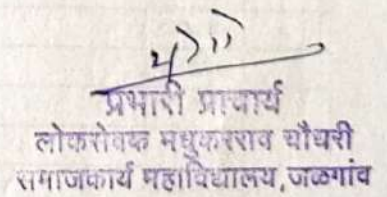 प्रभारी प्राचार्य
लोकसेवक मधुकरराव चौधरी
समाजकार्य महाविद्यालय, जळगांव